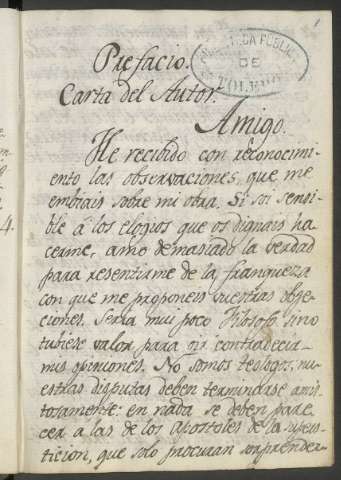 1
BIBLIOTECA PÚBLICA
DE
TOLEDO
Prefacio.
Carta del Autor.
Amigo.
He recibido con reconocimi-
ento las observaciones, que me
embiais sobre mi obra. Si soi sensi-
ble â los elogios que os dignais ha
cerme, amo demasiado la verdad
para resentirme de la franqueza
con que me proponeis vuestras obge-
ciones. Seria mui poco Filosofo sino
tubiese valor para oir contradecir
mis opiniones. No somos teologos, nu-
estras disputas deben terminarse amis-
tosamente: en nada se deben pare
cer a las de los apostoles de la supers-
ticion, que solo procuran sorprender-